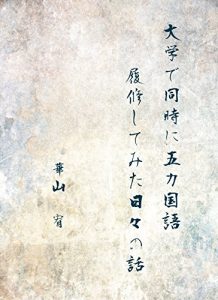 大学で同時に五カ国語
履修してみた日々の話
華山 宥